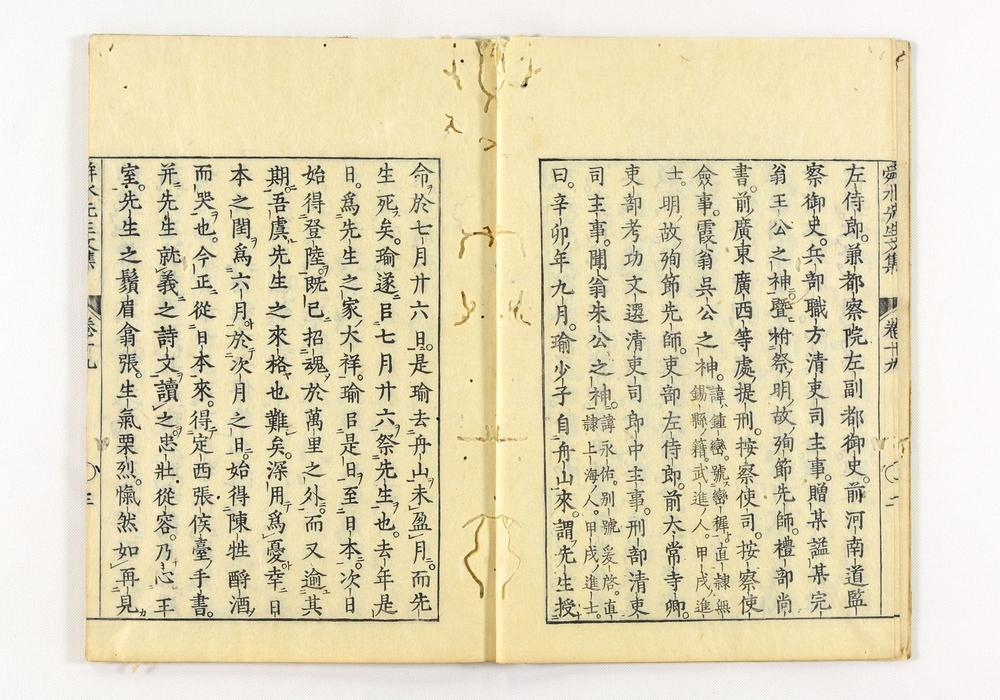 舜水先生文集 卷十九 二
左侍郎兼都察院左副都御史前河南道監
察御史兵部職方清吏司主事贈某謚某完
翁王公之神曁祔祭明故殉節先師禮部尚
書前廣東廣西等處提刑按察使司按察使
僉事霞翁吳公之神諱鍾巒號巒穉直隷無錫縣籍武進人甲戌進
士明故殉節先師吏部左侍郎前大常寺卿
吏部考功文選清吏司郎中主事刑部清吏
司主事聞翁朱公之神諱永佑別號爰啓直隷上海人甲戌進士
曰辛卯年九月瑜少子自舟山來謂先生授
命於七月廿六日是瑜去舟山未盈月而先
生死矣瑜遂㠯七月廿六祭先生也去年是
日爲先生之家大祥瑜㠯是日至日本次日
始得登陸既已招魂於萬里之外而又逾其
期吾虞先生之來格也難矣深用爲憂幸日
本之閏爲六月於次月之日始得陳牲酹酒
而哭也今正從日本來得定西張侯臺手書
并先生就義之詩文讀之忠壯從容乃心王
室先生之鬚眉翕張生氣栗烈愾然如再見
舜水先生文集 卷十九 三